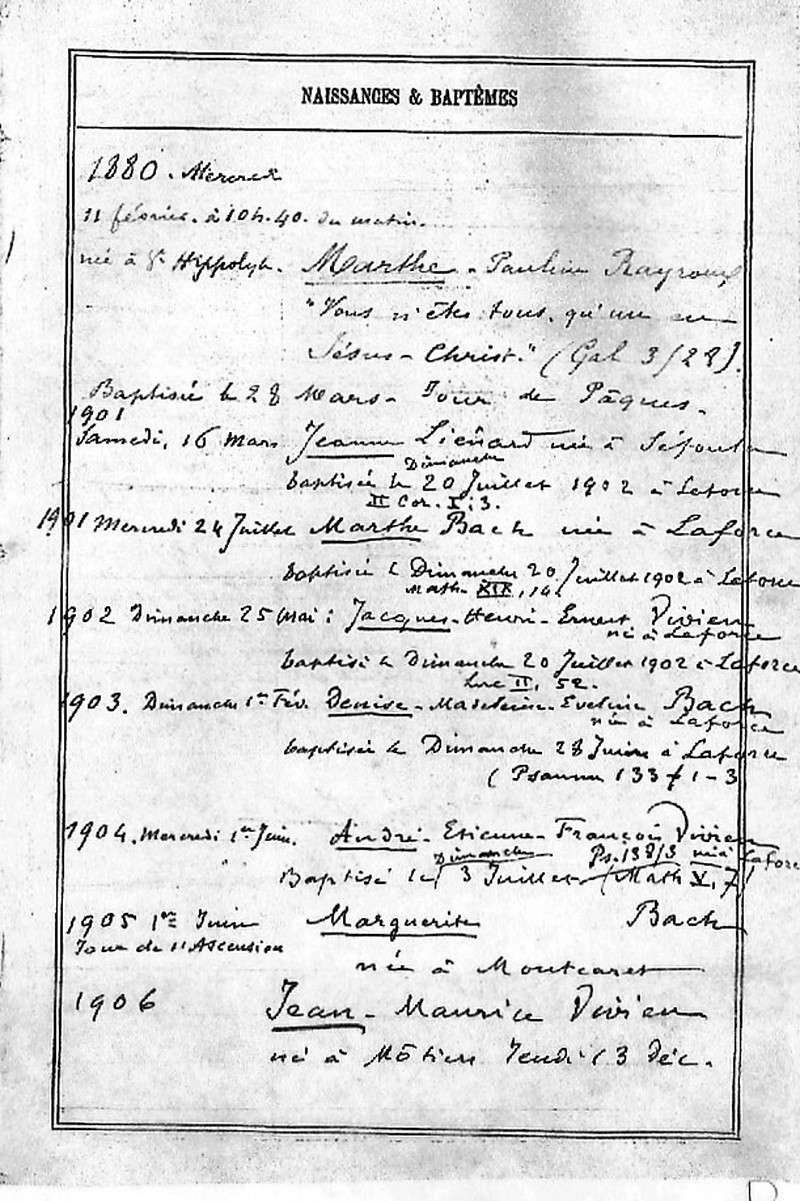 NAISSANCES & BAPTÊMES
1880. Mercredi
11 février. à 10h.40. du matin.
née à St Hippolyte. Marthe - Pauline Rayroux
"Vous n'êtes tous, qu'un en
Jésus-Christ." (Gal 3/28).
Baptisée le 28 Mars - Jour de Pâques.
1901
Samedi, 16 Mars Jeanne Liénard née à
Dimanche
baptisée le 20 Juillet 1902 à Laforce
II Cor. I: 3.
1901 Mercredi 24 Juillet Marthe Bach née à Laforce
baptisée le Dimanche 20 Juillet 1902 à Laforce
Math. XIX, 14.
1902 Dimanche 25 Mai: Jacques-Henri-Ernest Vivien
né à Laforce
baptisé le Dimanche 20 Juillet 1902 à Laforce
Luc II, 52.
1903. Dimanche 1er Fév. Denise-Madeleine-Eveline Bach
née à Laforce
baptisée le Dimanche 28 Juin à Laforce
(Psaume 133 1-3
1904. Mercredi 1er Juin. André-Etienne-François Vivien
Dimanche Ps. 138/3 né à Laforce
Baptisé le 3 Juillet (Math V, 7)
1905 1er Juin Marguerite Bach
Jour de l'Ascension
née à Montcaret
1906 Jean-Maurice Vivien
né à Môtiers Jeudi 13 Déc.